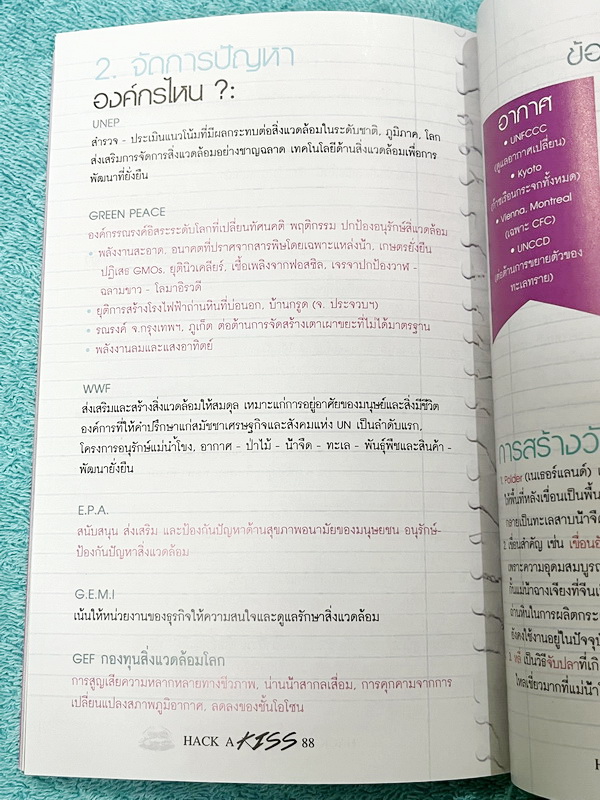 2. จัดการปัญหา
องค์กรไหน ?:
UNEP
สำรวจ - ประเมินแนวโน้มที่มีผลกระทบต่อสิ่งแวดล้อมในระดับชาติ, ภูมิภาค, โลก
ส่งเสริมการจัดการสิ่งแวดล้อมอย่างชาญฉลาด เทคโนโลยีด้านสิ่งแวดล้อมเพื่อการ
พัฒนาที่ยั่งยืน
GREEN PEACE
องค์กรรณรงค์อิสระระดับโลกที่เปลี่ยนทัศนคติ พฤติกรรม ปกป้องอนุรักษ์สิ่งแวดล้อม
• พลังงานสะอาด, อนาคตที่ปราศจากสารพิษโดยเฉพาะแหล่งน้ำ, เกษตรยั่งยืน
ปฏิเสธ GMOs, ยุตินิวเคลียร์, เชื้อเพลิงจากฟอสซิล, เจรจาปกป้องวาฬ -
ฉลามขาว - โลมาอิรวดี
• ยุติการสร้างโรงไฟฟ้าถ่านหินที่บ่อนอก, บ้านกรูด (จ. ประจวบฯ)
• รณรงค์ จ.กรุงเทพฯ, ภูเก็ต ต่อต้านการจัดสร้างเตาเผาขยะที่ไม่ได้มาตรฐาน
• พลังงานลมและแสงอาทิตย์
WWF
ส่งเสริมและสร้างสิ่งแวดล้อมให้สมดุล เหมาะแก่การอยู่อาศัยของมนุษย์และสิ่งมีชีวิต
องค์การที่ให้คำปรึกษาแก่สมัชชาเศรษฐกิจและสังคมแห่ง UN เป็นลำดับแรก,
โครงการอนุรักษ์แม่น้ำโขง, อากาศ - ป่าไม้ - น้ำจืด - ทะเล - พันธุ์พืชและสินค้า -
พัฒนายั่งยืน
E.P.A.
สนับสนุน ส่งเสริม และป้องกันปัญหาด้านสุขภาพอนามัยของมนุษยชน อนุรักษ์-
ป้องกันปัญหาสิ่งแวดล้อม
G.E.M.I
เน้นให้หน่วยงานของธุรกิจให้ความสนใจและดูแลรักษาสิ่งแวดล้อม
GEF กองทุนสิ่งแวดล้อมโลก
การสูญเสียความหลากหลายทางชีวภาพ, น่านน้ำสากลเสื่อม, การคุกคามจากการ
เปลี่ยนแปลงสภาพภูมิอากาศ, ลดลงของชั้นโอโซน
HACK A KISS 88
อากาศ
• UNFCCC
(ดูแลอากาศเปลี่ยน)
• Kyoto
(ก๊าซเรือนกระจกทั้งหมด)
• Vienna, Montreal
(เฉพาะ CFC)
• UNCCD
(ต่อต้านการขยายตัวของ
ทะเลทราย)
การสร้าง
1. Polder (เนเธอร์แลนด์)
ให้พื้นที่หลังเขื่อนเป็นพื้น
กลายเป็นทะเลสาบน้ำจืด
2. เขื่อนสำคัญ เช่น
เพราะความอุดมสมบูรณ์
กั้นแม่น้ำฉางเจียงที่จีน
ถ่านหินในการผลิต
ยังคงใช้งานอยู่ในปัจจุบัน
เป็นวิธีจับปลาที่
ไหลเชี่ยวมากที่แม่น้ำ